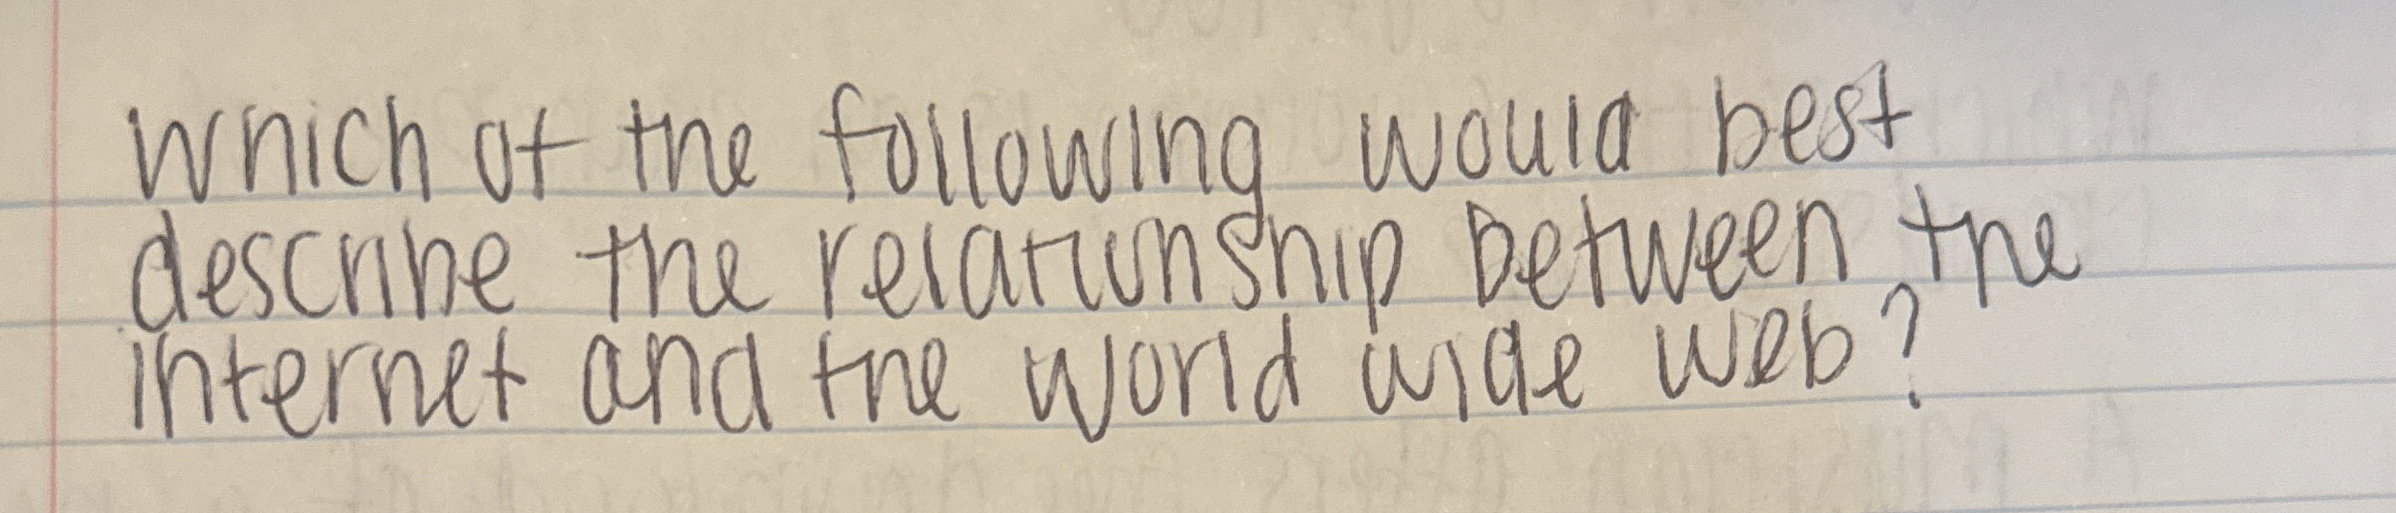 Which of the following would best
describe the relationship between the
internet and the world wide web?